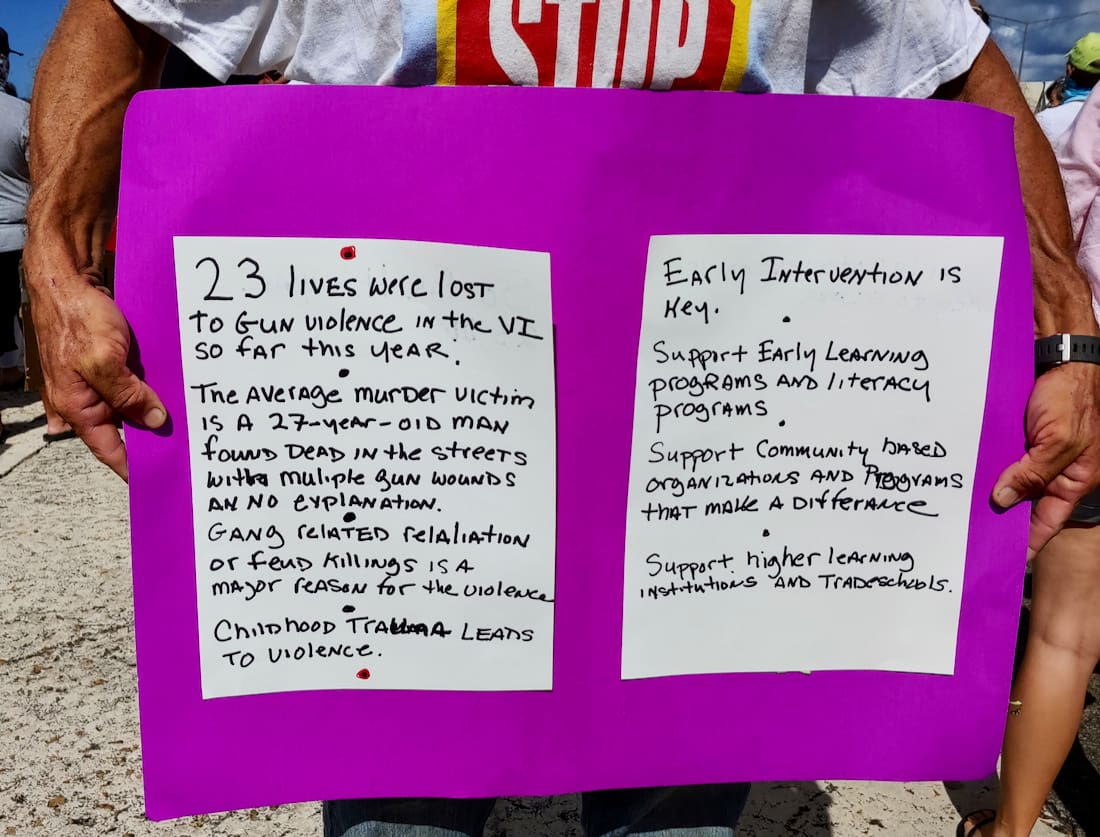 STOP
23 lives were lost
to Gun violence in the VI
so far this year.
The average murder victim
is a 27-year-old man
found dead in the streets
with muliple gun wounds
an no explanation.
Gang related relaliation
or feud killings is a
major reason for the violence
Childhood Trauma leads
to violence.
Early Intervention is
Key.
Support Early Learning
programs and literacy
programs
Support Community based
organizations and Programs
that make a difference
Support higher learning
institutions and Tradeschools.